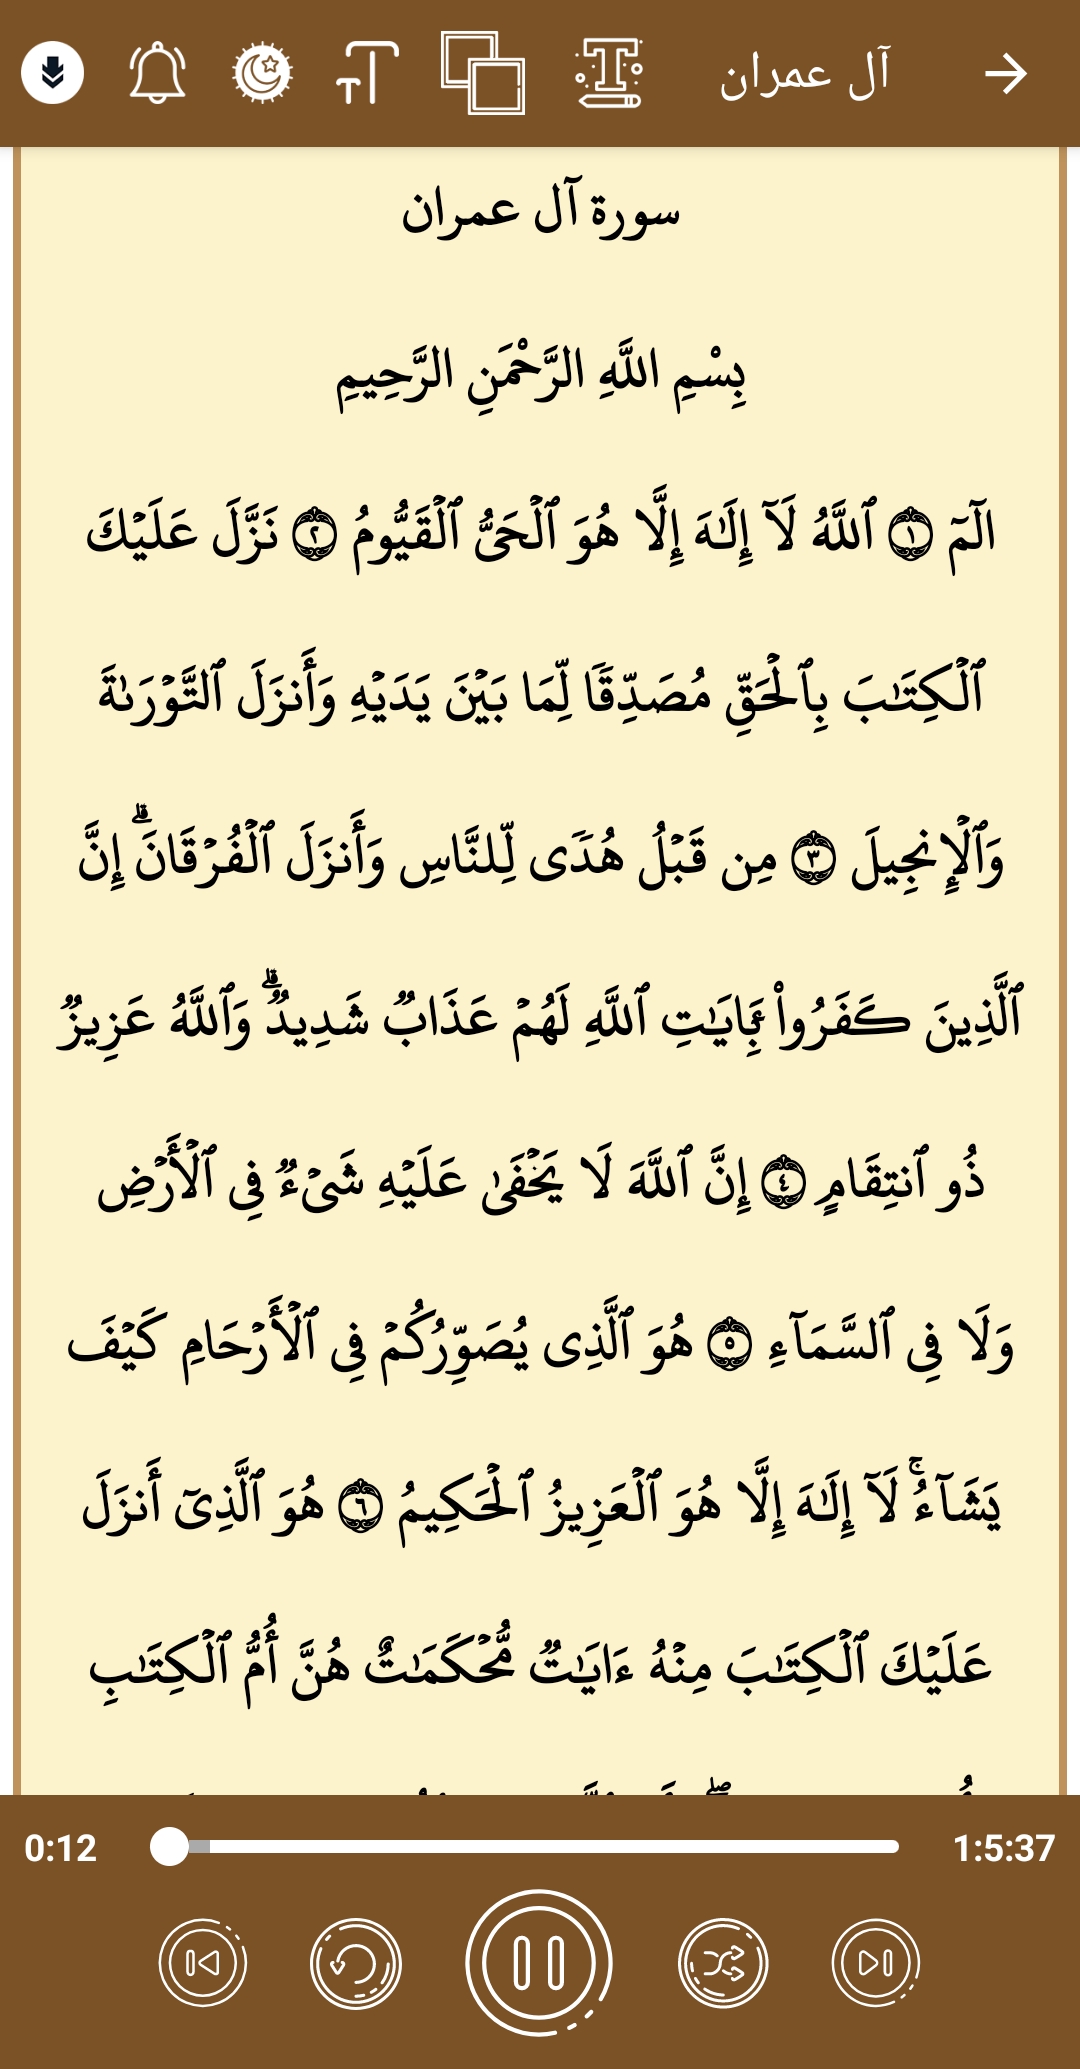 آل عمران
سورة آل عمران
بِسْمِ اللَّهِ الرَّحْمَنِ الرَّحِيمِ
الٓمٓ ١ ٱللَّهُ لَآ إِلَـٰهَ إِلَّا هُوَ ٱلْحَىُّ ٱلْقَيُّومُ ٢ نَزَّلَ عَلَيْكَ
ٱلْكِتَـٰبَ بِٱلْحَقِّ مُصَدِّقًا لِّمَا بَيْنَ يَدَيْهِ وَأَنزَلَ ٱلتَّوْرَىٰةَ
وَٱلْإِنجِيلَ ٣ مِن قَبْلُ هُدًى لِّلنَّاسِ وَأَنزَلَ ٱلْفُرْقَانَ ۗ إِنَّ
ٱلَّذِينَ كَفَرُوا۟ بِـَٔايَـٰتِ ٱللَّهِ لَهُمْ عَذَابٌ شَدِيدٌ ۗ وَٱللَّهُ عَزِيزٌ
ذُو ٱنتِقَامٍ ٤ إِنَّ ٱللَّهَ لَا يَخْفَىٰ عَلَيْهِ شَىْءٌ فِى ٱلْأَرْضِ
وَلَا فِى ٱلسَّمَآءِ ٥ هُوَ ٱلَّذِى يُصَوِّرُكُمْ فِى ٱلْأَرْحَامِ كَيْفَ
يَشَآءُ ۚ لَآ إِلَـٰهَ إِلَّا هُوَ ٱلْعَزِيزُ ٱلْحَكِيمُ ٦ هُوَ ٱلَّذِىٓ أَنزَلَ
عَلَيْكَ ٱلْكِتَـٰبَ مِنْهُ ءَايَـٰتٌ مُّحْكَمَـٰتٌ هُنَّ أُمُّ ٱلْكِتَـٰبِ
0:12
1:5:37